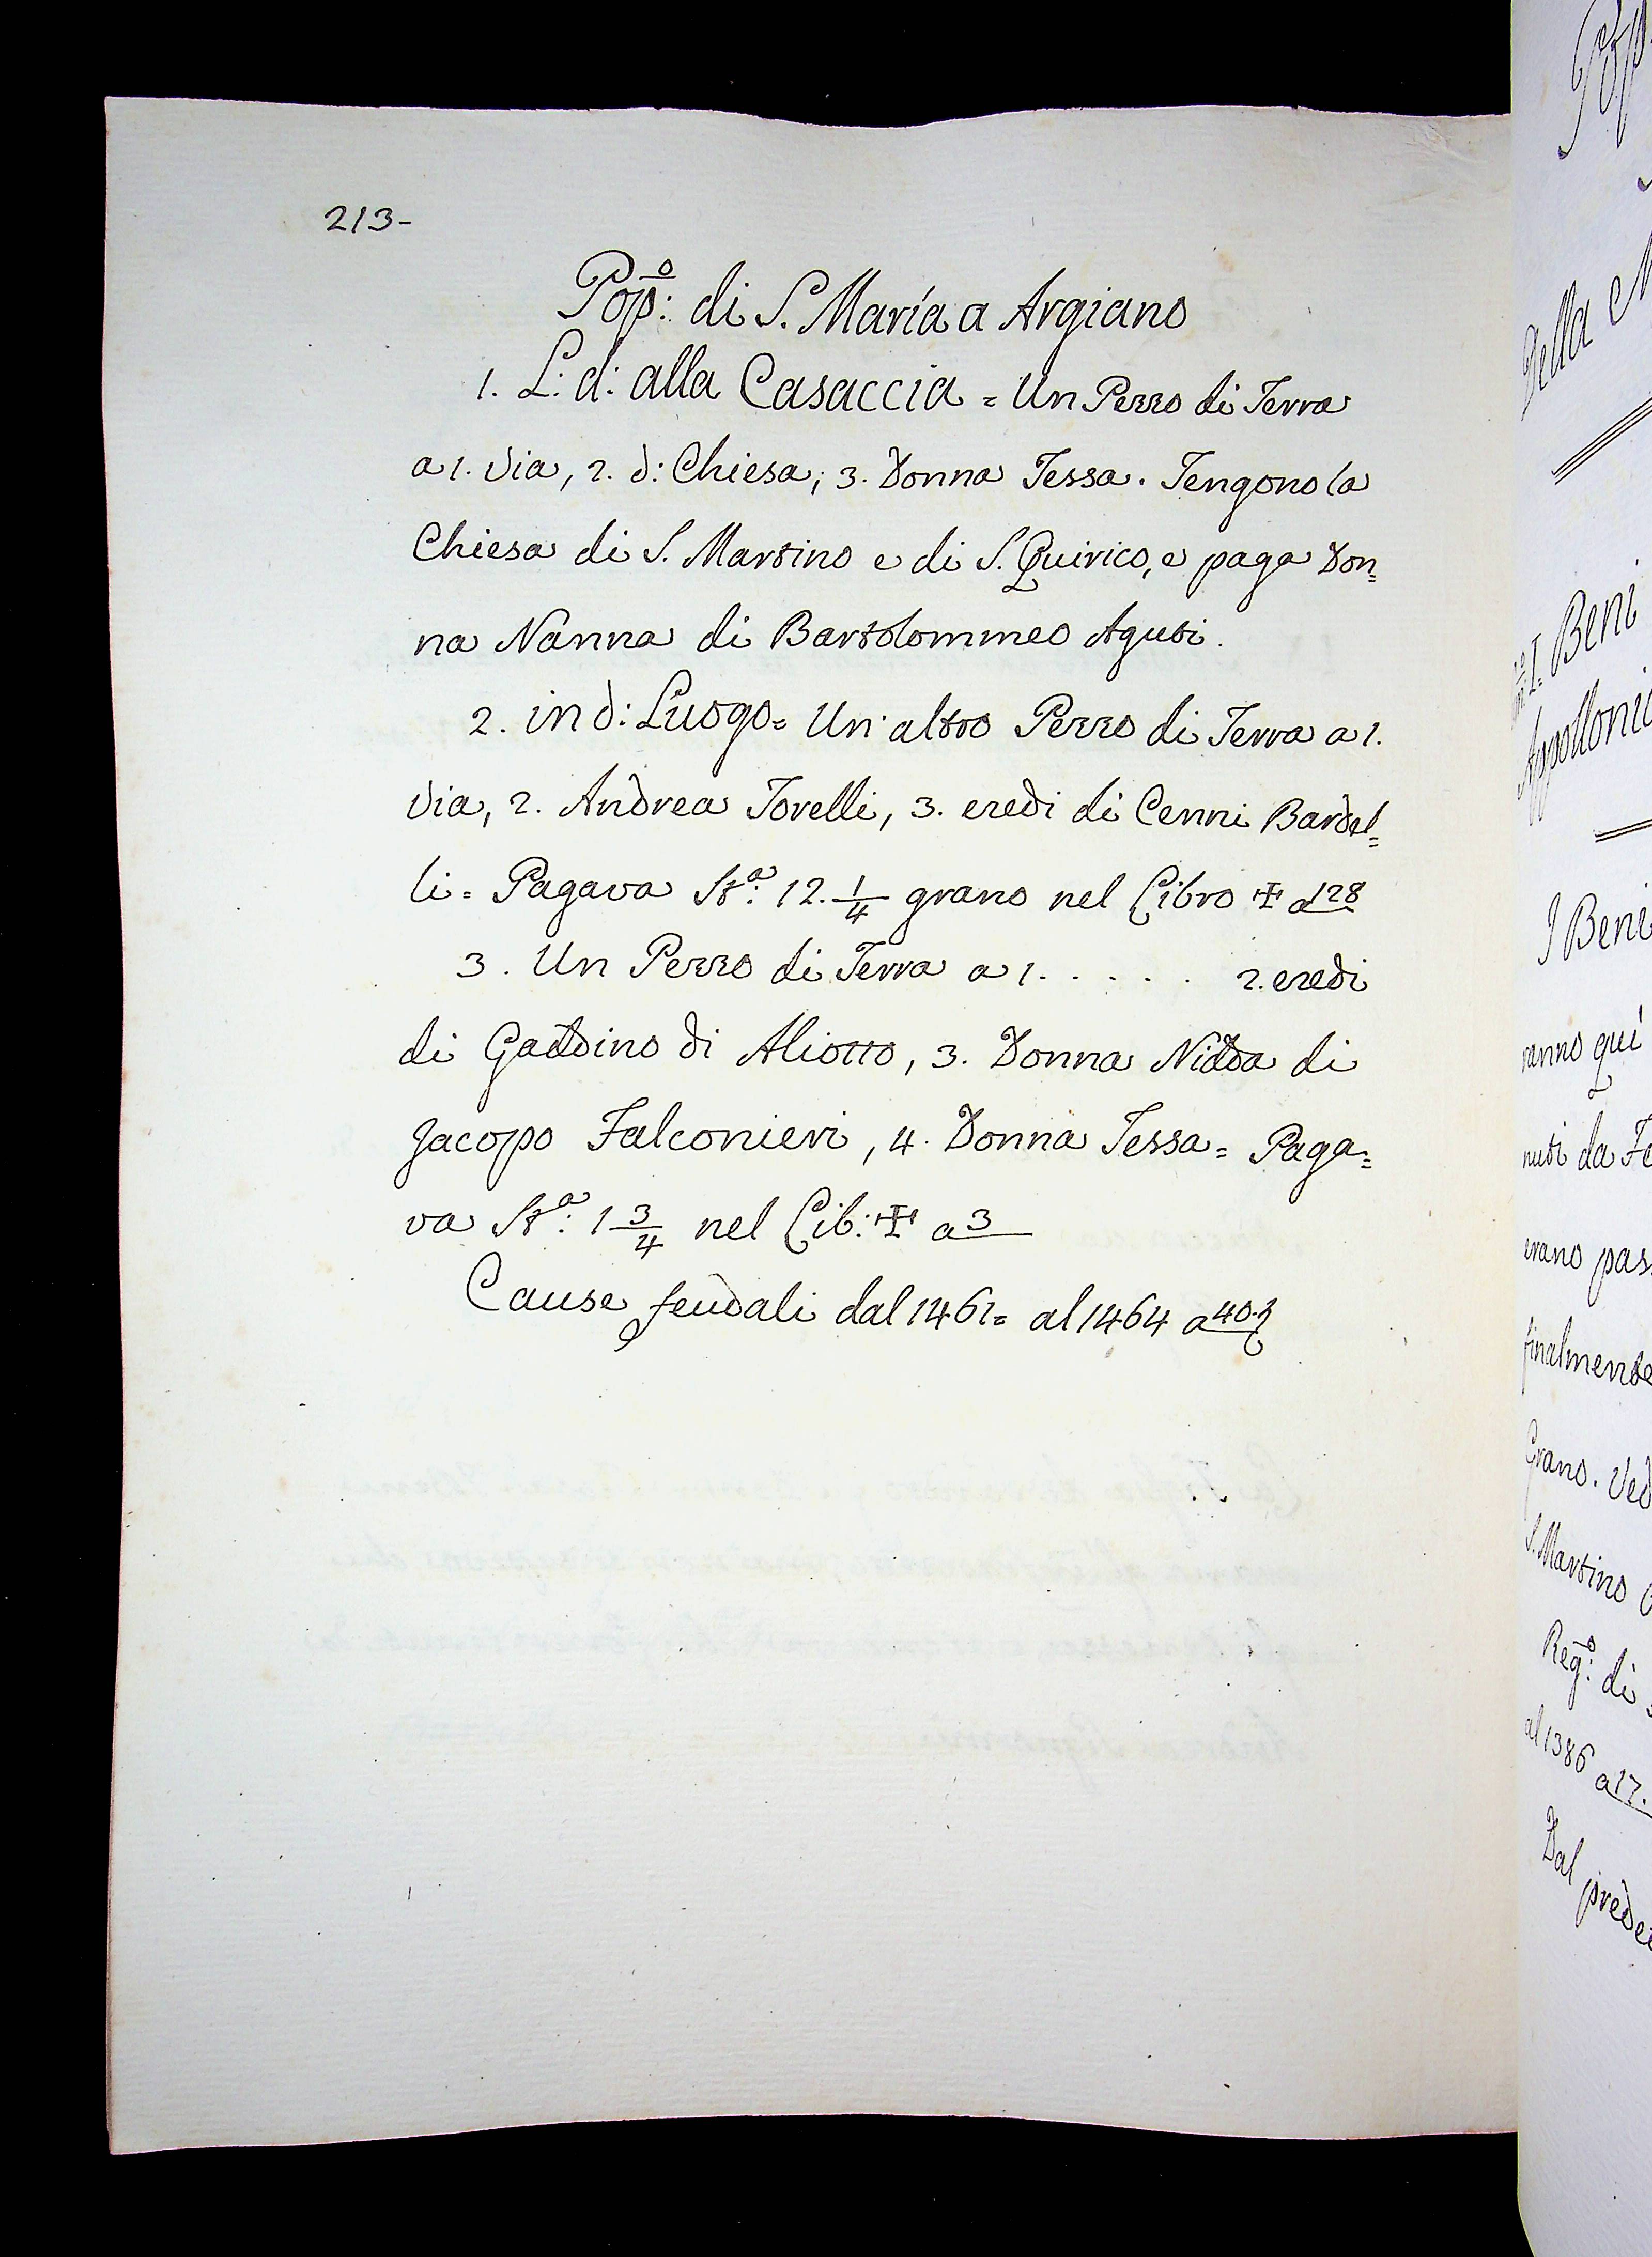 213-
Pop.º: di S. Maria a Argiano
1. L: d: alla Casaccia = Un Pezzo di Terra
a 1. via, 2. d: Chiesa; 3. Donna Tessa. Tengono la
Chiesa di S. Martino e di S. Quirico, e paga Don=
na Nanna di Bartolommeo Aguti.
2. in d: Luogo= Un altro Pezzo di Terra a 1.
via, 2. Andrea Torelli, 3. eredi di Cenni Bardel=
li= Pagava Stª: 12. 1/4 grano nel Libro ✠ a 128
3. Un Pezzo di Terra a 1. . . . . . 2. eredi
di Gaddino di Aliotto, 3. Donna Nidda di
Jacopo Falconieri, 4. Donna Tessa= Paga=
va Stª: 1 3/4 nel Lib: ✠ a 3
Cause feudali dal 1461= al 1464 a
della
I= Beni
I Beni
ranno quì
nuti da
erano
finalmente
Grano.
S. Martino
Regº: di
al 1386 a 17.
Dal